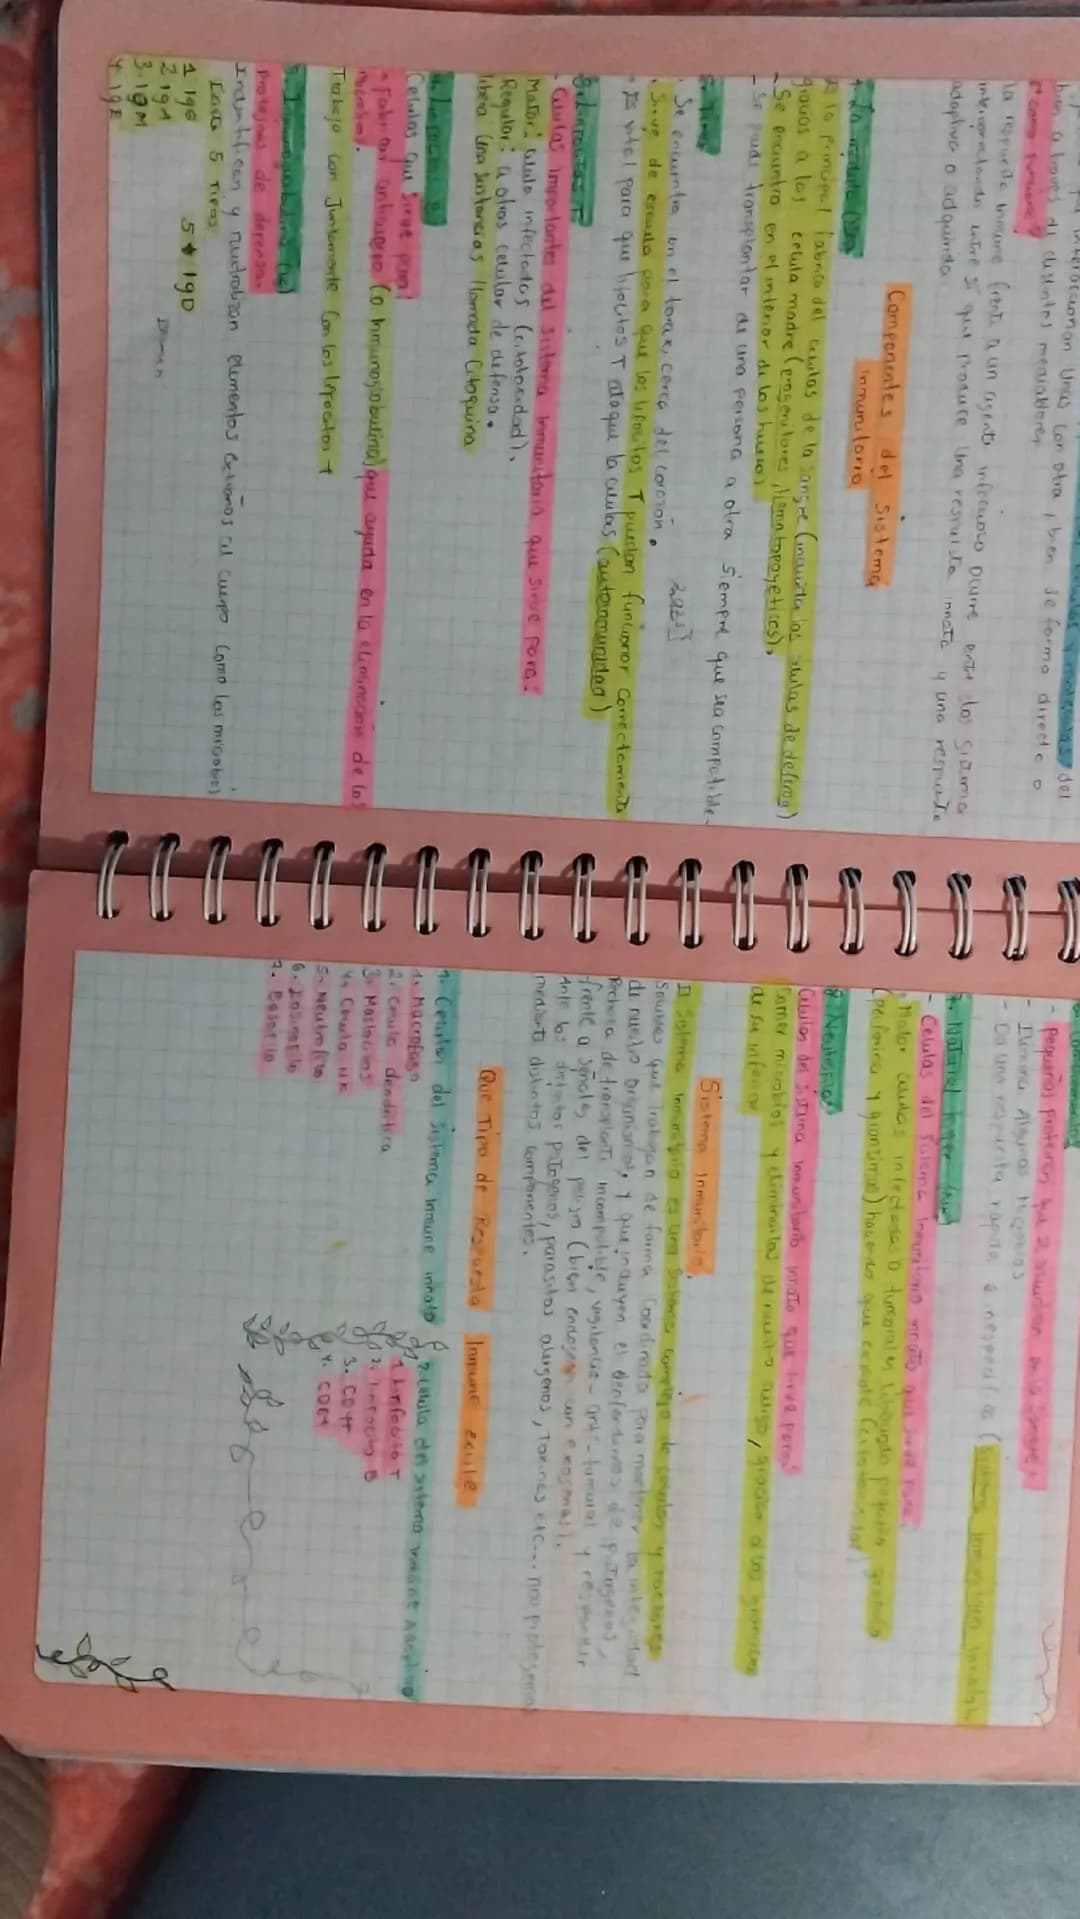 bien a traves de distintos mediadores
como funciona?
la repuesta inmune frente a un agente infeccioso ocurre entre los sistema
interaccionando entre si que produce una respuesta innata y una respuesta
adaptiva o adquirida.
Componentes del Sistema
Inmunitario
1. La medula osea
Es la principal fabrica del celulas de la sangre (incluida las celulas de defensa)
gracias a las celula madre (progenitores, hematopoyeticos).
- Se encuentra en el interior de los huesos
- Se puede transplantar de una persona a otra siempre que sea compatible-
2. Timo
Se encuentra en el torax, cerca del corazón.
. Sirve de escuela para que los linfocitos T puedan funcionar correctamente
. Es vital para que lifocitos T ataque la celulas (autoinmunidad)
3. Linfocitos T
- Celulas importantes del sistema inmunitario que sirve para:
Matar: celula infectadas (citotoxidad),
Regular: a otras celular de defensa.
libera una sustancias llamada Citoquina
4. Linfocitos B
Celulas que sirve para:
- Fabricar anticuerpo (o inmunoglobulina) que ayuda en la eliminación de los
Trabajo con juntamente con los lifocitor T
5. Inmunoglobulina (IG)
Proteinas de defensa.
Indentifican y neutralizan elementos extraños al cuerpo como los microbios
Exite 5 Tipos
1 IgG
2 IgA
3. IgM
4 IgE
5 IgD
- pequeñas proteinas que se encuentran en la sangre
- Elimina Algunas
- Da una respuesta rapida e inespecifica (
7. Natural killer (NK)
- Celulas del sistema inmunitario innato que sirve para:
. Matar celulas infectadas o tumorales liberando pequeño granulo
(perforina y granzimas) haciendo que explote (citotoxicidad)
8. Neutrofilos
Celulas del sistema inmunitario innato que sirve para:
Comer microbios y eliminarlas de nuestro cuerpo, gracias a las
de su interior
Sistema Inmunitario
El Sistema inmunitario es una sistema complejo de celulas y factores
solubles que trabajan de forma coordinada para mantener la integridad
de nuestro organismo, y que incluyen el defendernos de patogenos,
Rechaza de transplante incompatible, vigilancia - anti-tumoral y responder
frente a señales del peligro (bien endogen un exogenas).
Ante los distintos patogenos, parasitos alergenos, toxinas etc... nos protegemos
mediante distintos componentes.
Que Tipo de Respuesta Inmune existe
1. Celulas del sistema Inmune innato
1. Macrofago
2. Celula dendritica
3. Mastocitos
4. Celula NK
5. Neutrofilo
6. Eosinofilo
7. Basofilo
2. Celula del sistema inmune Adaptivo
1. Linfocito T
2. linfocito B
3. CD4
4. CD8